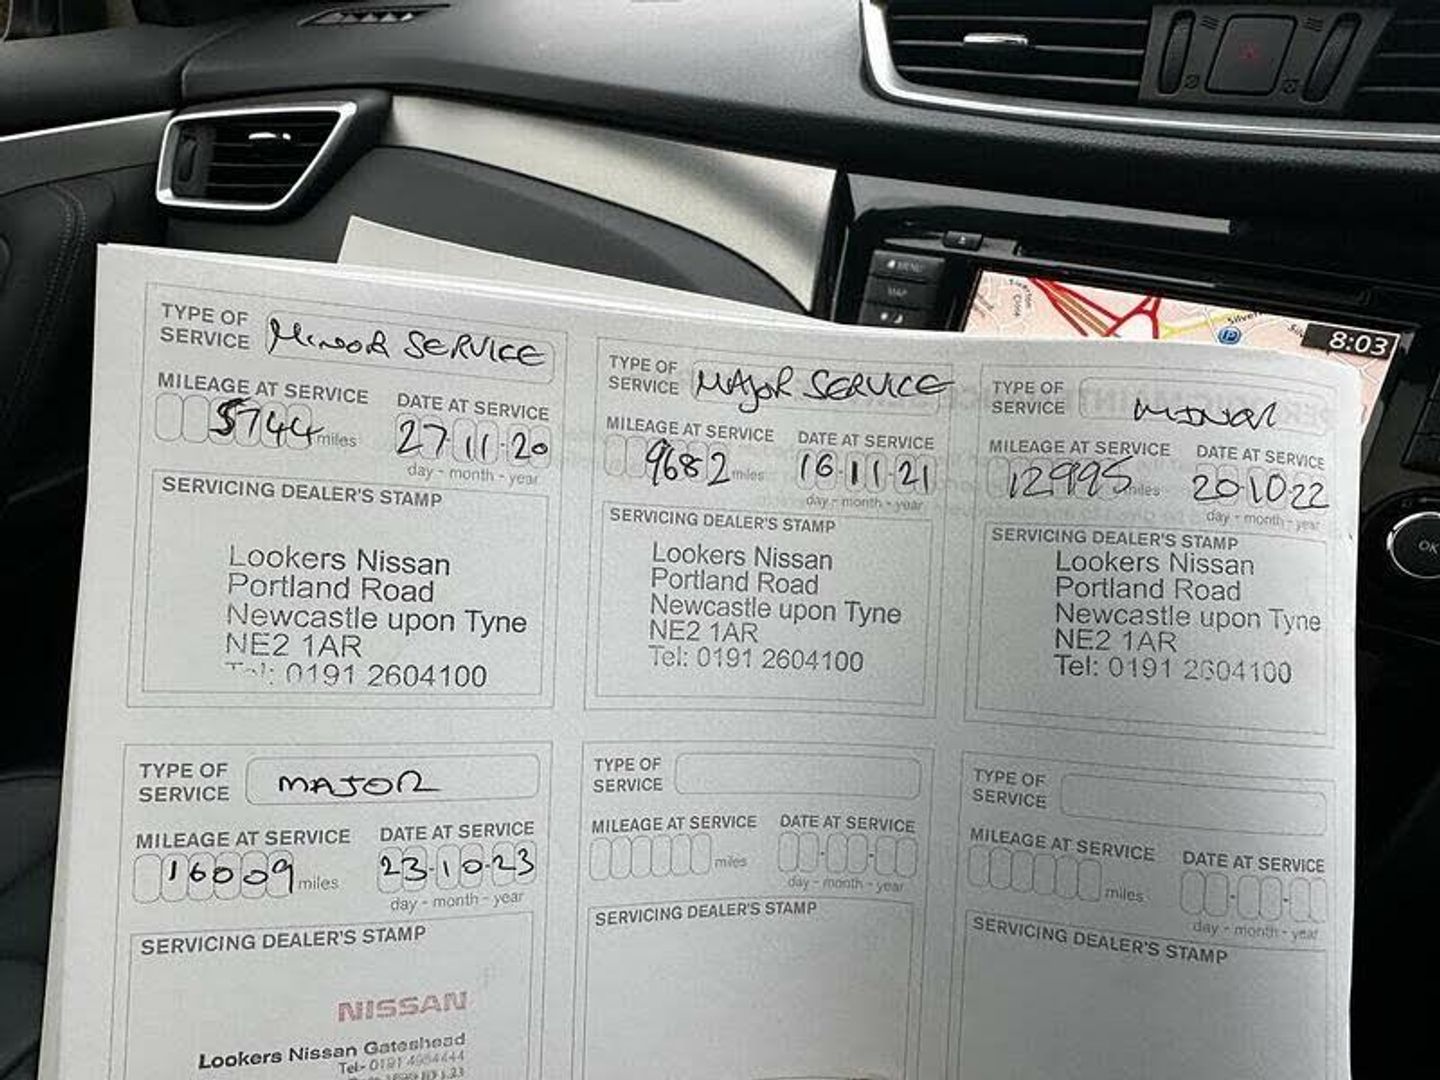 MENU
MAP
8:03
OK
TYPE OF
SERVICE
MINOR SERVICE
MILEAGE AT SERVICE
5744 miles
DATE AT SERVICE
27-11-20
day - month - year
SERVICING DEALER'S STAMP
Lookers Nissan
Portland Road
Newcastle upon Tyne
NE2 1AR
Tel: 0191 2604100
TYPE OF
SERVICE
MAJOR SERVICE
MILEAGE AT SERVICE
9682 miles
DATE AT SERVICE
16-11-21
day - month - year
SERVICING DEALER'S STAMP
Lookers Nissan
Portland Road
Newcastle upon Tyne
NE2 1AR
Tel: 0191 2604100
TYPE OF
SERVICE
MINOR
MILEAGE AT SERVICE
12995 miles
DATE AT SERVICE
20-10-22
day - month - year
SERVICING DEALER'S STAMP
Lookers Nissan
Portland Road
Newcastle upon Tyne
NE2 1AR
Tel: 0191 2604100
TYPE OF
SERVICE
MAJOR
MILEAGE AT SERVICE
16009 miles
DATE AT SERVICE
23-10-23
day - month - year
SERVICING DEALER'S STAMP
NISSAN
Lookers Nissan Gateshead
Tel- 0191 4954444
TYPE OF
SERVICE
MILEAGE AT SERVICE
miles
DATE AT SERVICE
day - month - year
SERVICING DEALER'S STAMP
TYPE OF
SERVICE
MILEAGE AT SERVICE
miles
DATE AT SERVICE
day - month - year
SERVICING DEALER'S STAMP